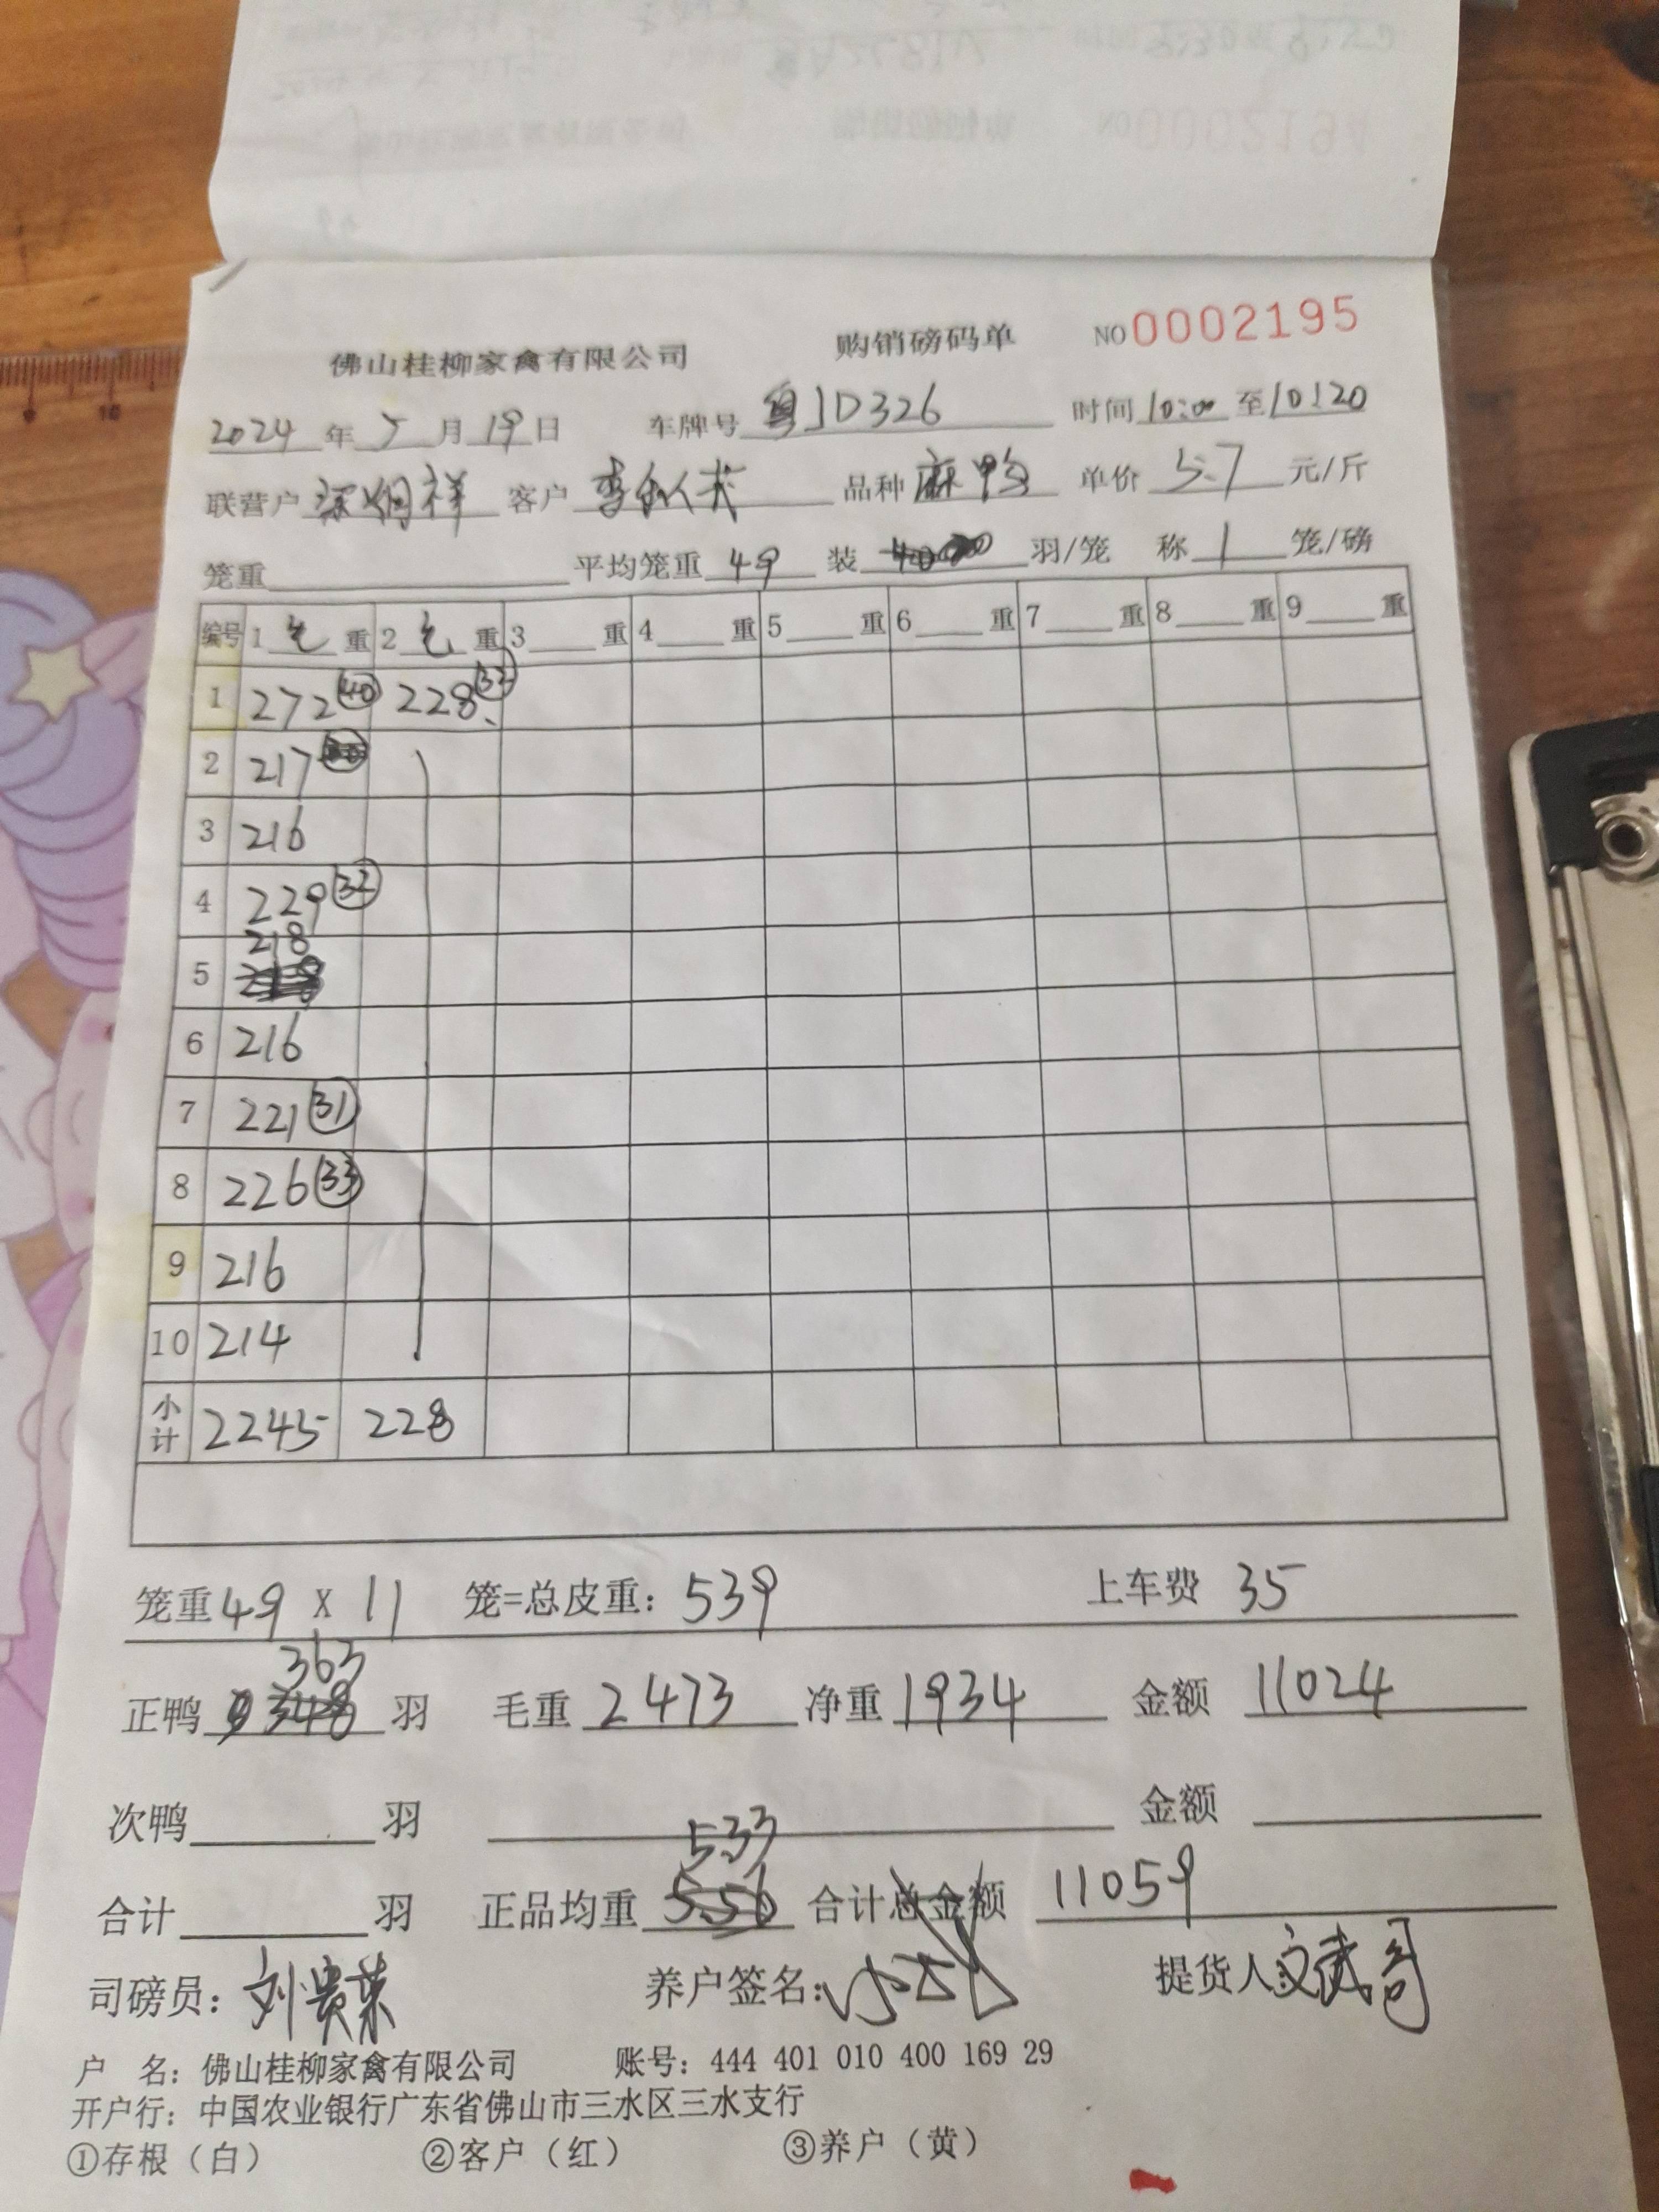 佛山桂柳家禽有限公司 购销磅码单 NO 0002195
2024 年 5 月 19 日 车牌号 粤JD326 时间 10:00 至 10:20
联营户 祥 客户 李 品种 麻鸭 单价 5.7 元/斤
笼重 平均笼重 49 装 羽/笼 称 1 笼/磅
编号 1 毛 重 2 毛 重 3 重 4 重 5 重 6 重 7 重 8 重 9 重
1 272 40 228
2 217
3 216
4 229 32
5 218
6 216
7 221 31
8 226 33
9 216
10 214
小计 2245 228
笼重 49 X 11 笼=总皮重: 539 上车费 35
正鸭 363 羽 毛重 2473 净重 1934 金额 11024
次鸭 羽 金额
合计 羽 正品均重 5.33 合计总金额 11059
司磅员: 刘贵荣 养户签名: 提货人
户 名: 佛山桂柳家禽有限公司 账号: 444 401 010 400 169 29
开户行: 中国农业银行广东省佛山市三水区三水支行
①存根（白） ②客户（红） ③养户（黄）